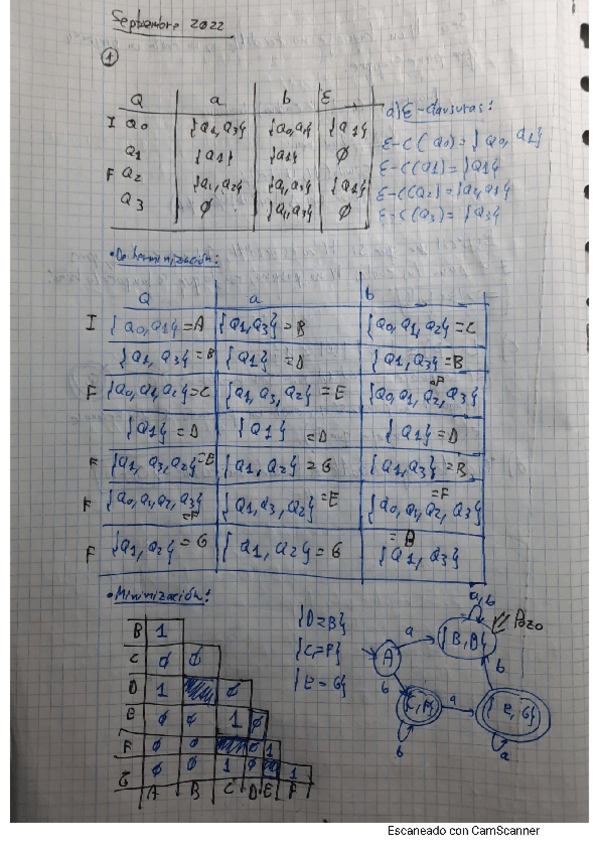 Septiembre 2022
1
Q a b ε
I Q0 {Q1,Q3} {Q0,Q2} {Q1}
Q1 {Q1} {Q1} ∅
F Q2 {Q1,Q2} {Q1,Q3} {Q1}
Q3 ∅ {Q1,Q3} ∅
a) ε-clausuras:
ε-C(Q0) = {Q0, Q1}
ε-C(Q1) = {Q1}
ε-C(Q2) = {Q2,Q1}
ε-C(Q3) = {Q3}
Q a b
I {Q0,Q1}=A {Q1,Q3}=B {Q0,Q1,Q2}=C
{Q1,Q3}=B {Q1}=D {Q1,Q3}=B
F {Q0,Q1,Q2}=C {Q1,Q3,Q2}=E {Q0,Q1,Q2,Q3}=F
{Q1}=D {Q1}=D {Q1}=D
F {Q1,Q3,Q2}=E {Q1,Q2}=G {Q1,Q3}=B
F {Q0,Q1,Q2,Q3}=F {Q1,Q3,Q2}=E {Q0,Q1,Q2,Q3}=F
F {Q1,Q2}=G {Q1,Q2}=G {Q1,Q3}=B
• Minimización:
B 1
C ∅ ∅
D 1 ∅
E ∅ ∅ 1 ∅
F ∅ ∅ ∅ 1
G ∅ ∅ 1 ∅ 1
A B C D E F
{D=B}
{C=F}
{E=G}
a,b
Pozo
A a {B,D}
b b
{C,F} a {E,G}
b a
Escaneado con CamScanner